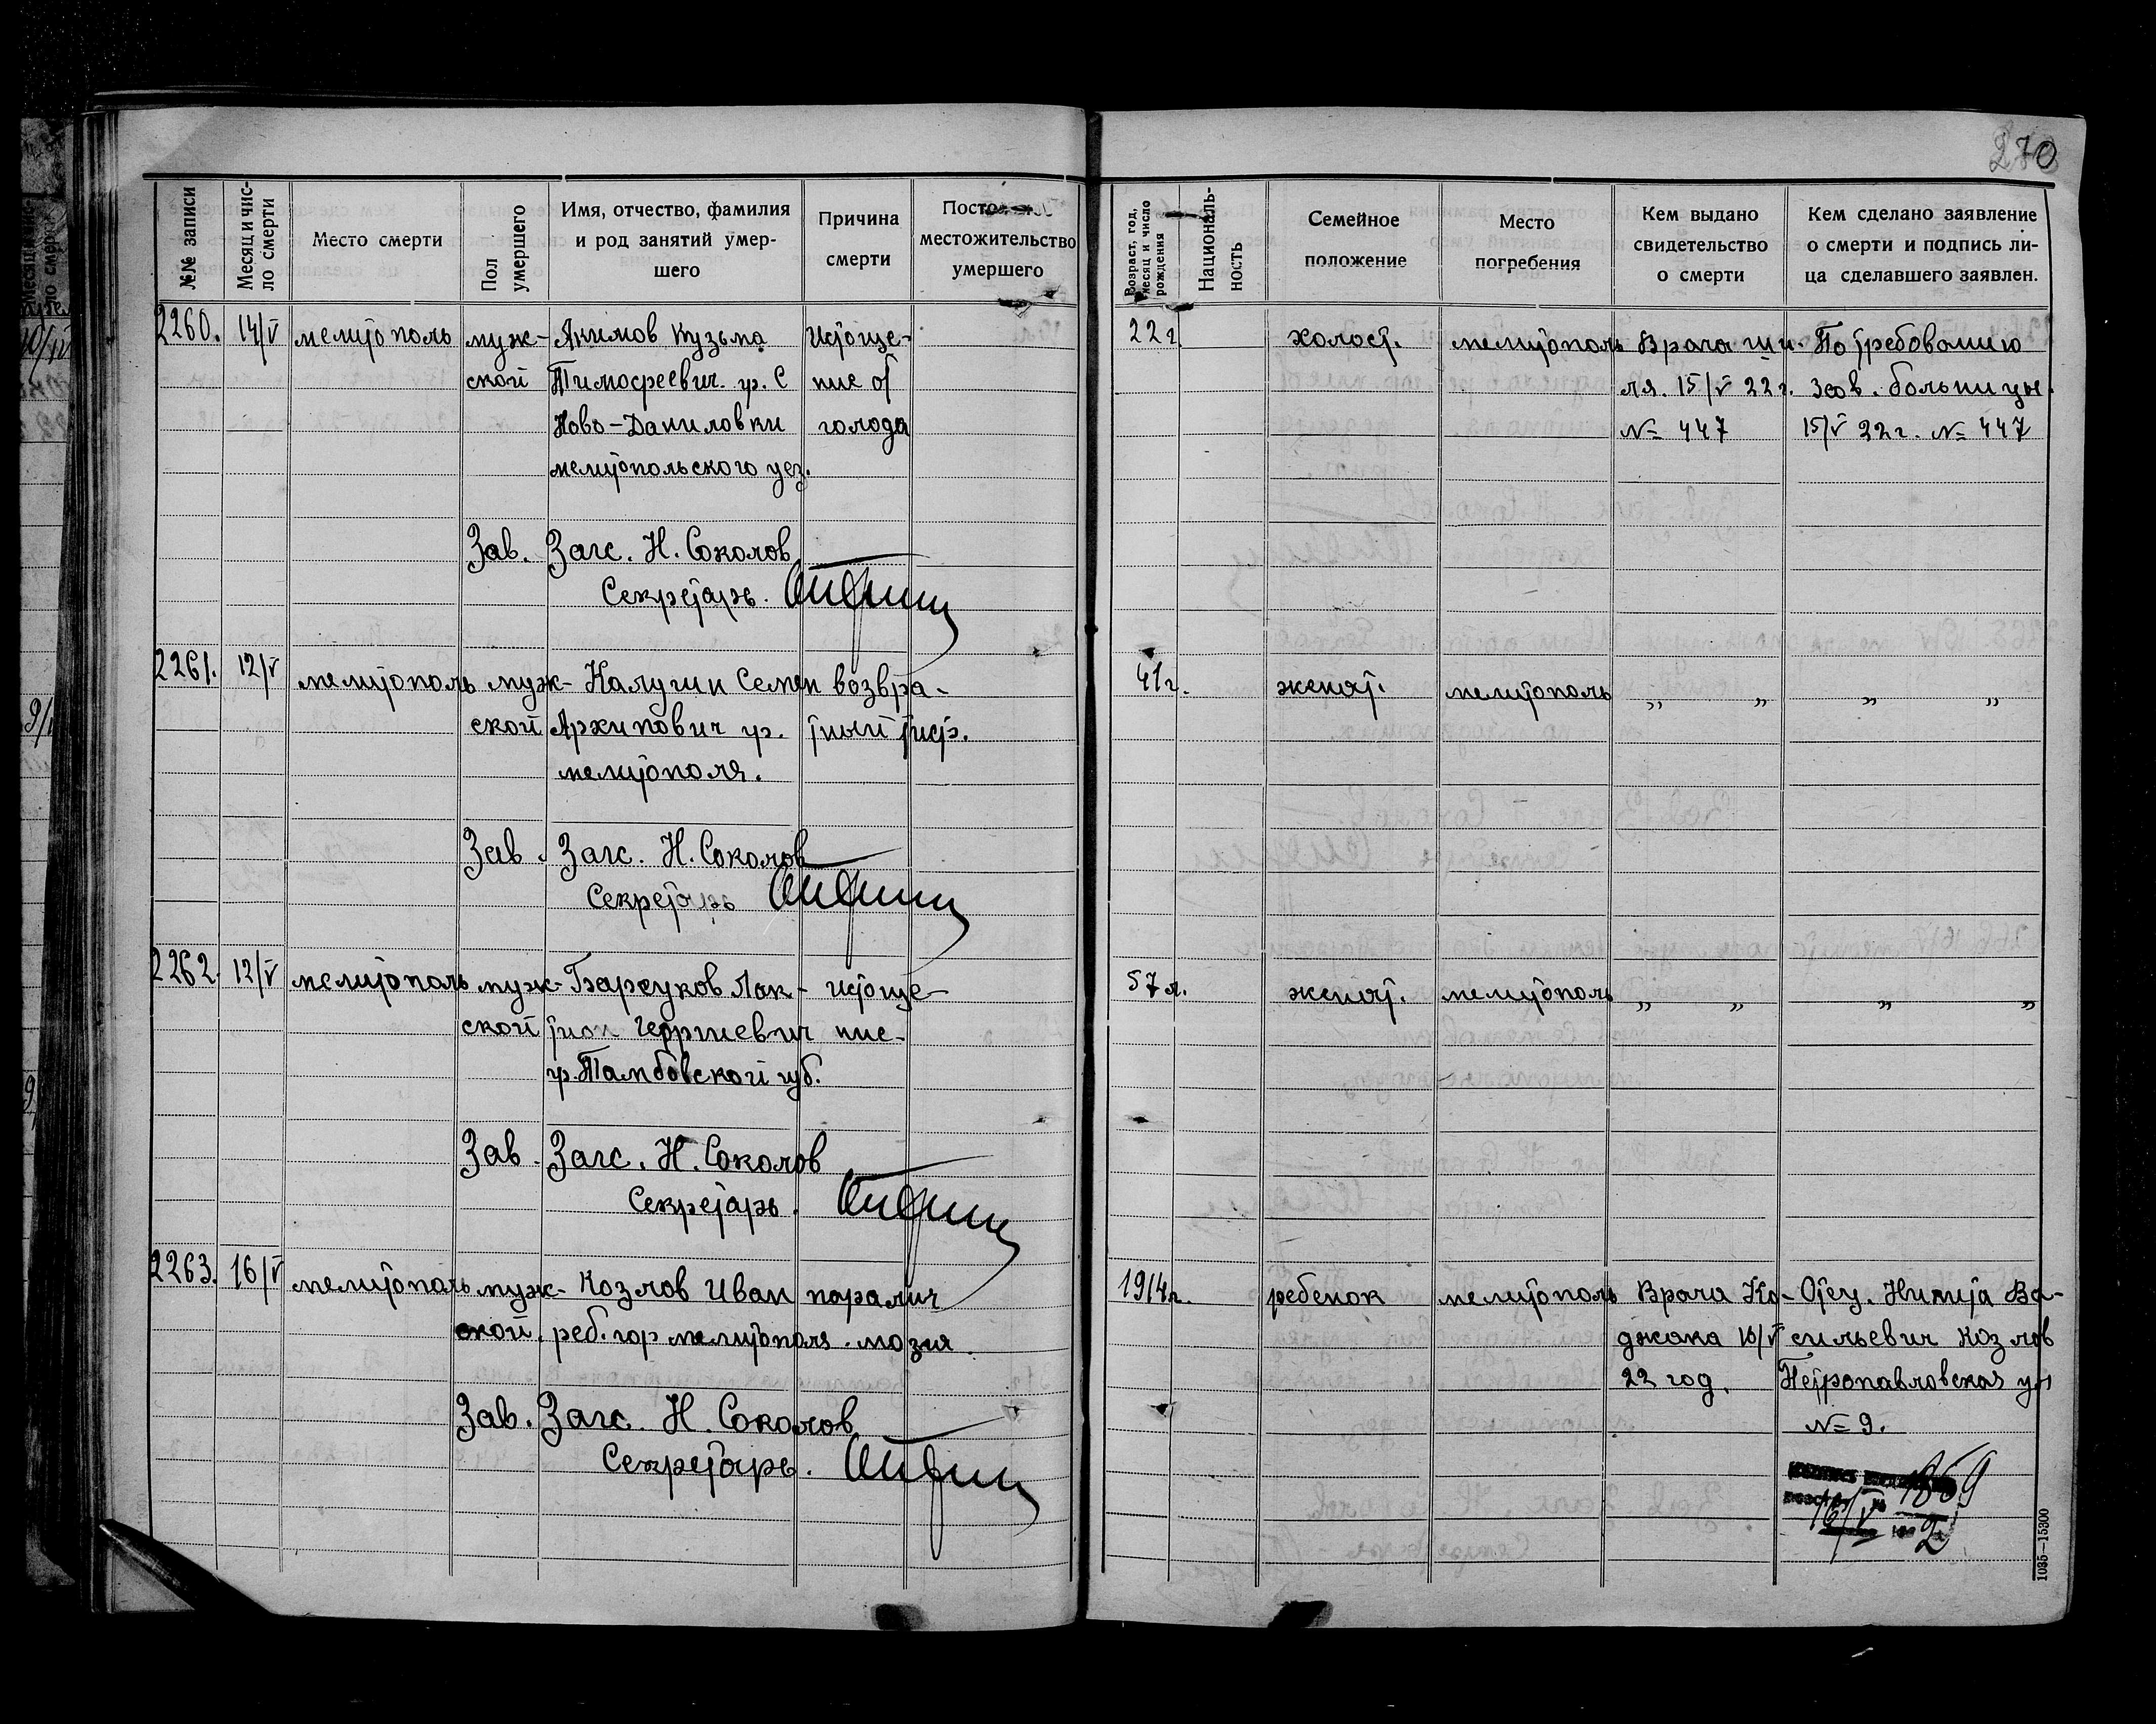 270
№№ записи
Месяц и число смерти
Место смерти
Пол умершего
Имя, отчество, фамилия
и род занятий умер-
шего
Причина
смерти
местожительство
умершего
Возраст, год,
месяц и число
рождения
Националь-
ность
Семейное
положение
Место
погребения
Кем выдано
свидетельство
о смерти
Кем сделано заявление
о смерти и подпись ли-
ца сделавшего заявлен.
2260. 14/V мелитополь муж- Акимов Кузьма Истоще- 22 г. холост. мелитополь Врача По требованию
ской Тимофеевич. гр. С ние от 15/V 22 г. зав. больницы.
Ново-Даниловки голода № 447 15/V 22 г. № 447
мелитопольского уез.
Зав. Загс. Н. Соколов
Секретарь.
2261. 12/V мелитополь муж- Калугин Семен возвра- 41 г. женат. мелитополь „ „ „ „
ской Архипович гр. тный тиф.
мелитополя.
Зав. Загс. Н. Соколов
Секретарь
2262. 12/V мелитополь муж- Барсуков Лак- истоще- 57 л. женат. мелитополь „ „ „ „
ской тион Георгиевич ние-
гр. Тамбовской губ.
Зав. Загс. Н. Соколов
Секретарь.
2263. 16/V мелитополь муж- Козлов Иван паралич 1914 г. ребенок мелитополь Врача Ка- Отец. Никита Ва-
ской. реб. гор мелитополя. мозга. джака 16/V сильевич Козлов
22 год. Петропавловская ул
№ 9.
Зав. Загс. Н. Соколов
Секретарь.
1869
16/V
2
1035—15300